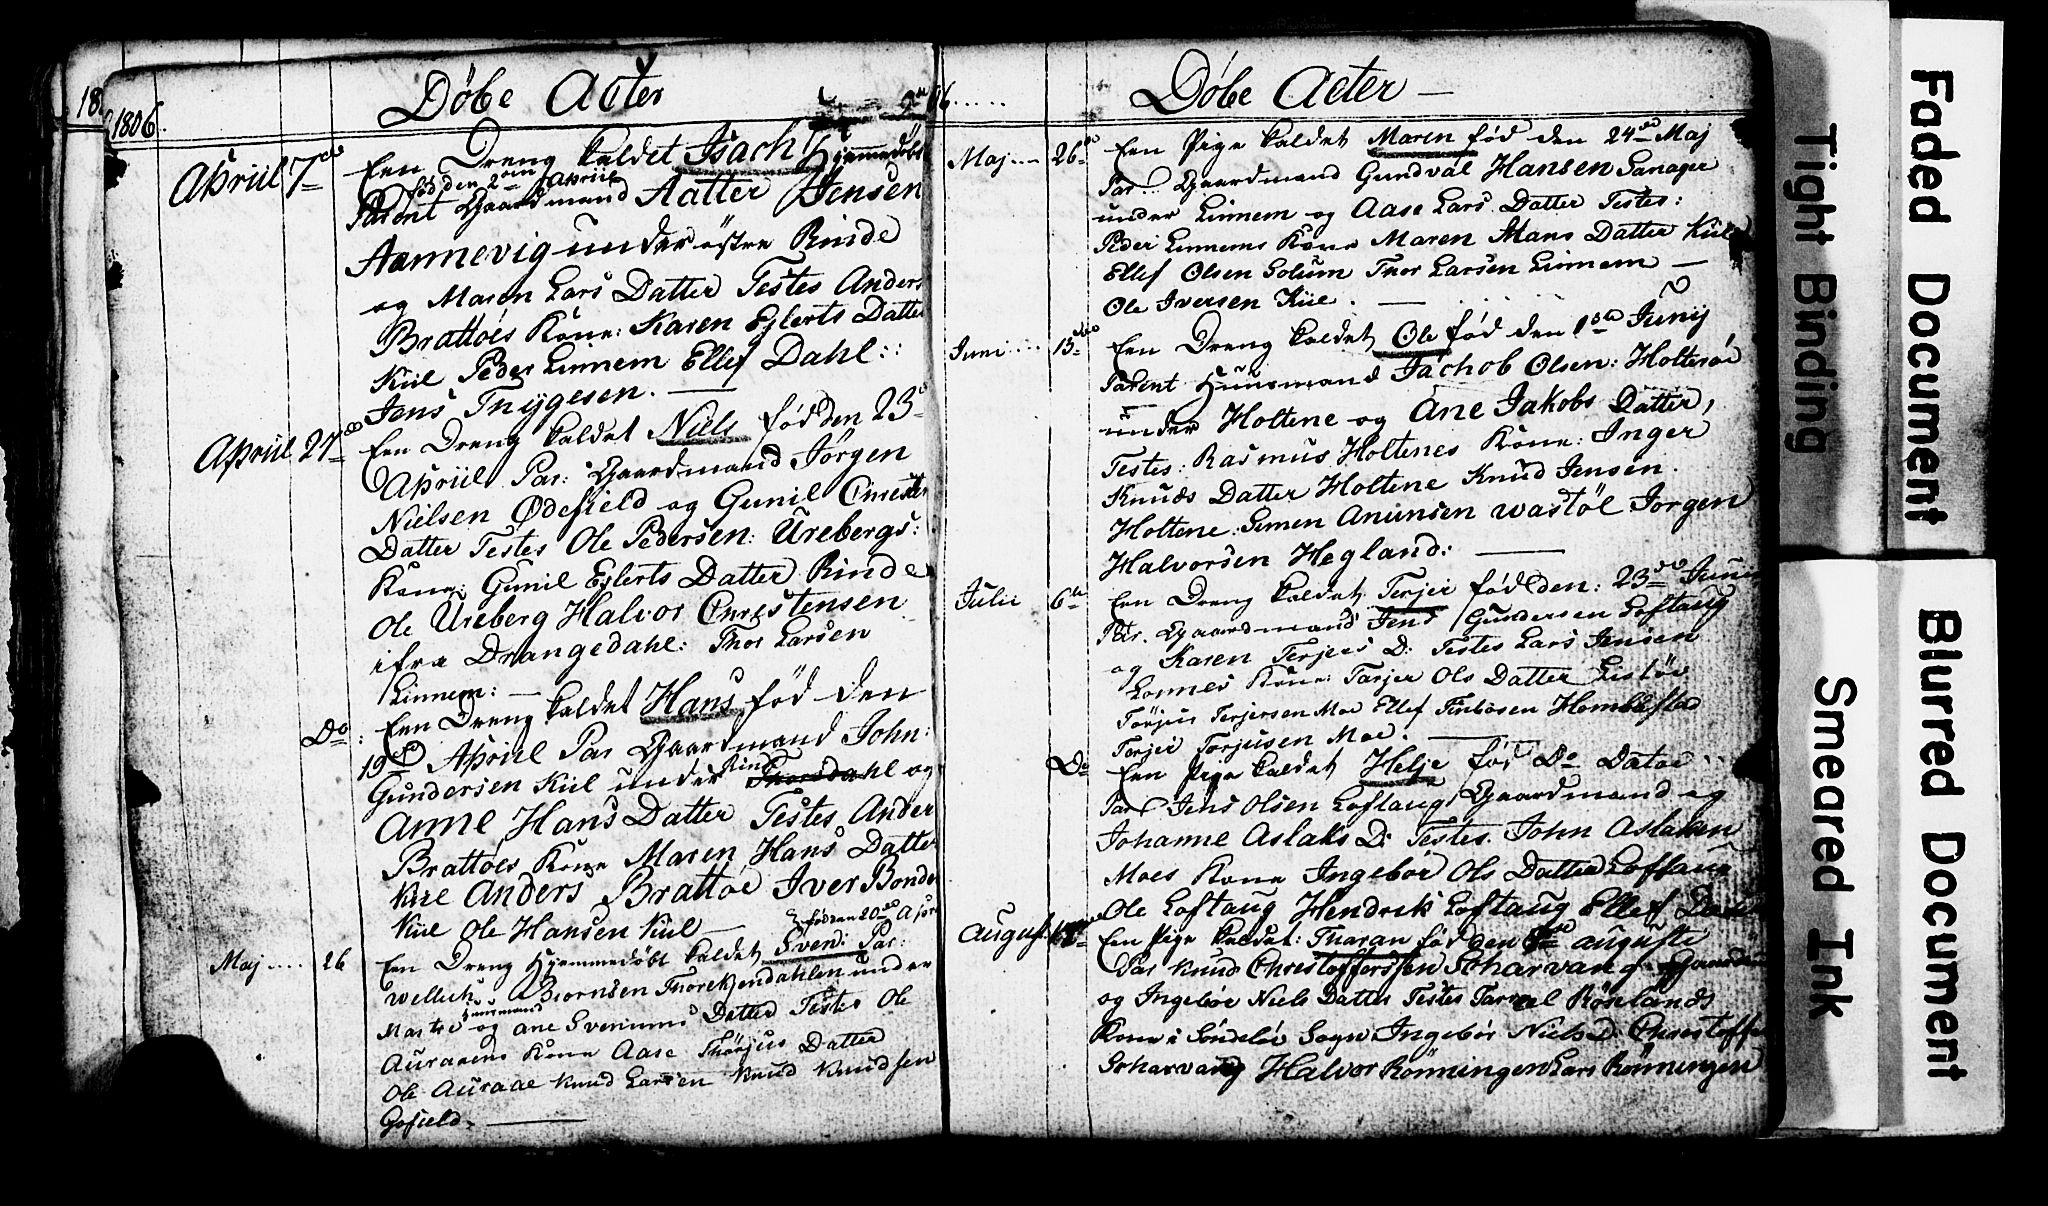 Døbe Acter
18
1806.
Apriil 7de Een Dreng kaldet Isach Hjemmedøbt
fød den 2den Apriil
Parent Gaardmand Aatter Jensen
Aarnevig under østre Rinde
og Maren Lars Datter Testes Anders
Brattøes Kone: Karen Eylerts Datter
Kiil Peder Linnem Ellef Dahl::
Jens Thygesen. —
Apriil 27de Een Dreng kaldet Niels fød den 23de
Apriil Par: Gaardmand Jørgen
Nielsen Ødefield og Gunil Chresten
Datter Testes Ole Pedersen: Urebergs:
Kone: Gunil Eylerts Datter Rinde
Ole Ureberg Halvor Chrestensen
ifra Drangedahl: Thor Larsen
Linnem: —
Do: Een Dreng kaldet Hans fød den
19de Apriil Par Gaardmand John:
Gundersen Kiil under Rind og
Anne Hans Datter Testes Ander
Brattøes Kone Maren Hans Datter
Kiil Anders Brattøe Iver Bonde
Kiil Ole Hansen Kiil —
fød den 20de Apr
Maj .... 26 Een Dreng Hjemmedøbt kaldet Svend: Par:
Biørnsen Thorekjendahlen under
Huusmand
og Ane Sveniums Datter Testes Ole
Auraaens Kone Aase Thørjus Datter
Ole Auraae Knud Larsen Knud Knudsen
Gofield. —
06 .....
Døbe Acter —
Maj ... 26de Een Pige kaldet Maren fød den 24de Maj
Par .. Gaardmand Gundval Hansen Sanager
under Linnem og Aase Lars Datter Testes:
Peder Linnems Kone Maren Hans Datter Kiil
Ellef Olsen Solum Thor Larsen Linnem —
Ole Iversen Kiil. —
Juni .... 15de Een Dreng kaldet Ole fød den 1ste Junij
Parent Huusmand Jachob Olsen: Holterøe
under Holtene og Ane Jakobs Datter,
Testes: Rasmus Holtenes Kone: Inger
Knuds Datter Holtene Knud Jensen.
Holtene: Simen Anunsen Wastøl Jørgen
Halvorsen Hegland: —
Julii 6te Een Dreng kaldet Terjei fød den: 23de Junii
Par. Gaardmand Jens Gundersen Loftaug
og Karen Terjees D: Testes Lars Jensen
Lonnes Kone: Tarjer Ols Datter Listøe
Torjus Terjersen Moe Ellef Tinbosen Hombkstad
Torjei Torjusen Moe. —
Do Een Pige kaldet Helje fød Do Datoe
Par Jens Olsen Loftaug Gaardmand og
Johanne Aslaks D: Testes. John Aslaksen
Moes Kone Ingebør Ols Datter Loftaug
Ole Loftaug Hendrik Loftaug Ellef
August Een Pige kaldet: Tharan fød den auguste
Par Knud Chrestofferssen Scharvang Gaardm
og Ingebør Niels Datter Testes Røselands
Kone i Søndeløv Sogn Ingebør Niels D: Chrestoffer
Scharvang Halvor Rønningen Lars Rønningen
Faded Document
Tight Binding
Blurred Document
Smeared Ink